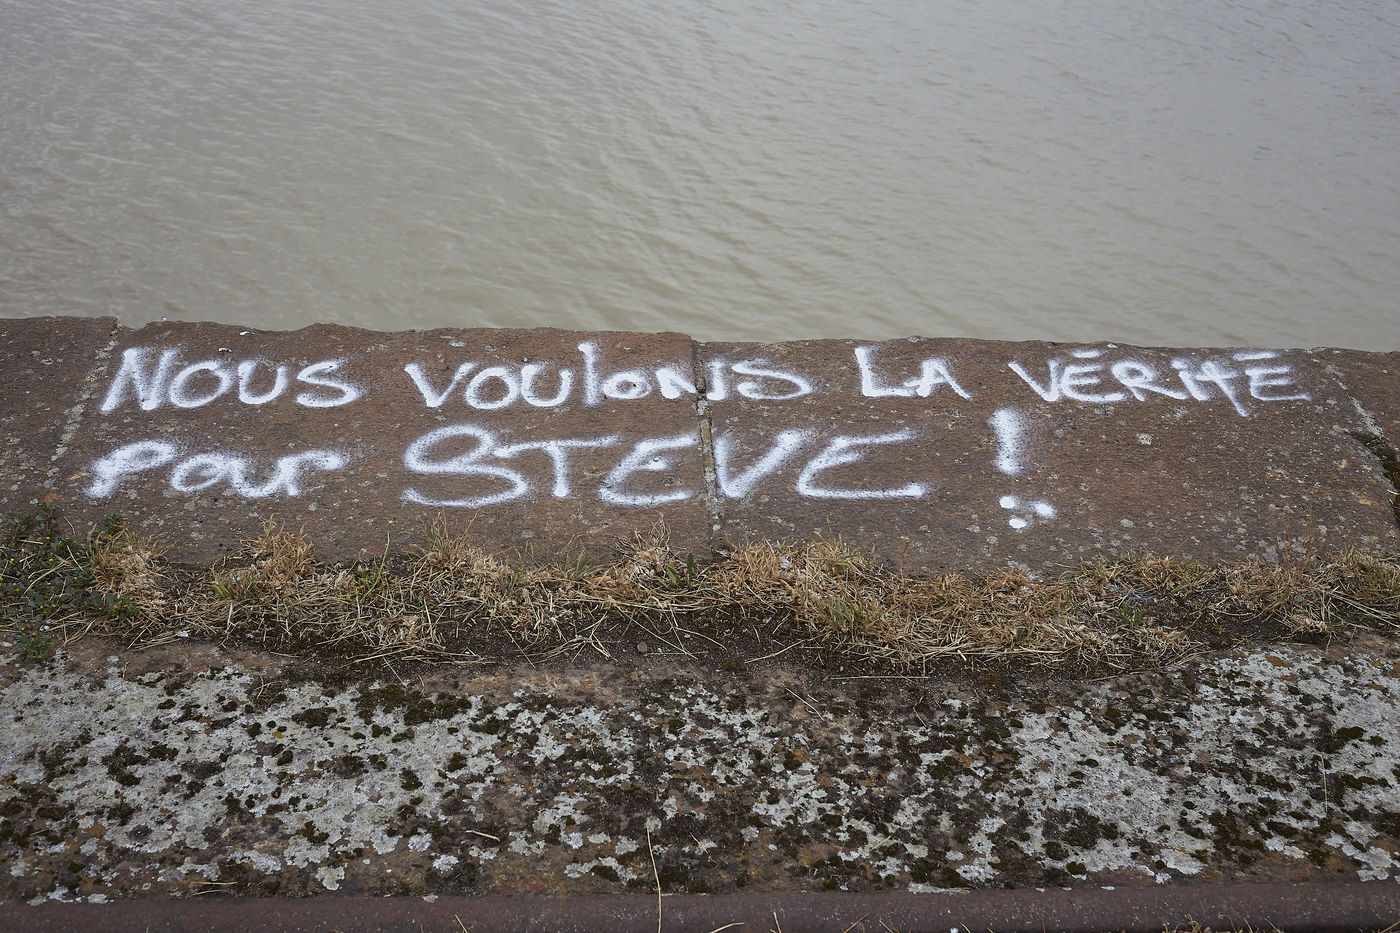 Nous voulons LA VÉRITÉ
pour STEVE !